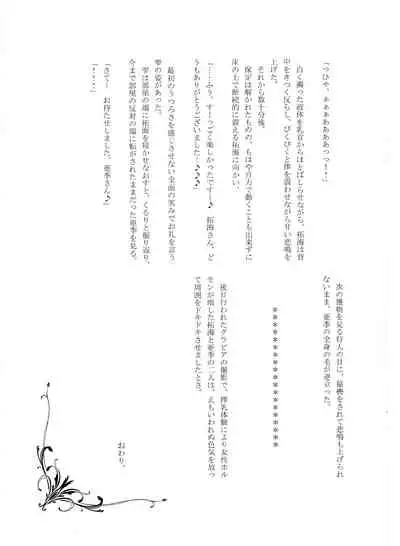 「つひゃ、ぁぁぁああああっっ！」
　白く濁った液体を乳首からほとばしらせながら、拓海は背
中をきつく反らし、びくびくと体を震わせながら甘い悲鳴を
上げた。
　それから数十分後。
　保定は解かれたものの、もはや自力で動くことも出来ずに
床の上で断続的に震える拓海に向かい、
「……ふう、すーっごく楽しかったですー♪　拓海さん、ど
うもありがとうございましたー♪♪♪」
　最初のうつろさを感じさせない全面の笑みでお礼を言う
雫の姿があった。
　雫は部屋の端に拓海を寝かせなおすと、くるりと振り返り、
今まで部屋の反対の端に転がされたままだった亜季を見る。
「さてー　お待たせしました、亜季さん♪」
「・・・・」
　次の獲物を見る狩人の目に、猿轡をされて悲鳴も上げられ
ないまま、亜季の全身の毛が逆立った。
＊＊＊＊＊＊＊＊＊＊＊＊＊＊＊＊
　後日行われたグラビアの撮影で、搾乳体験により女性ホル
モンが増した拓海と亜季の二人は、えもいわれぬ色気を放っ
て周囲をドキドキさせましたとさ。
おわり。